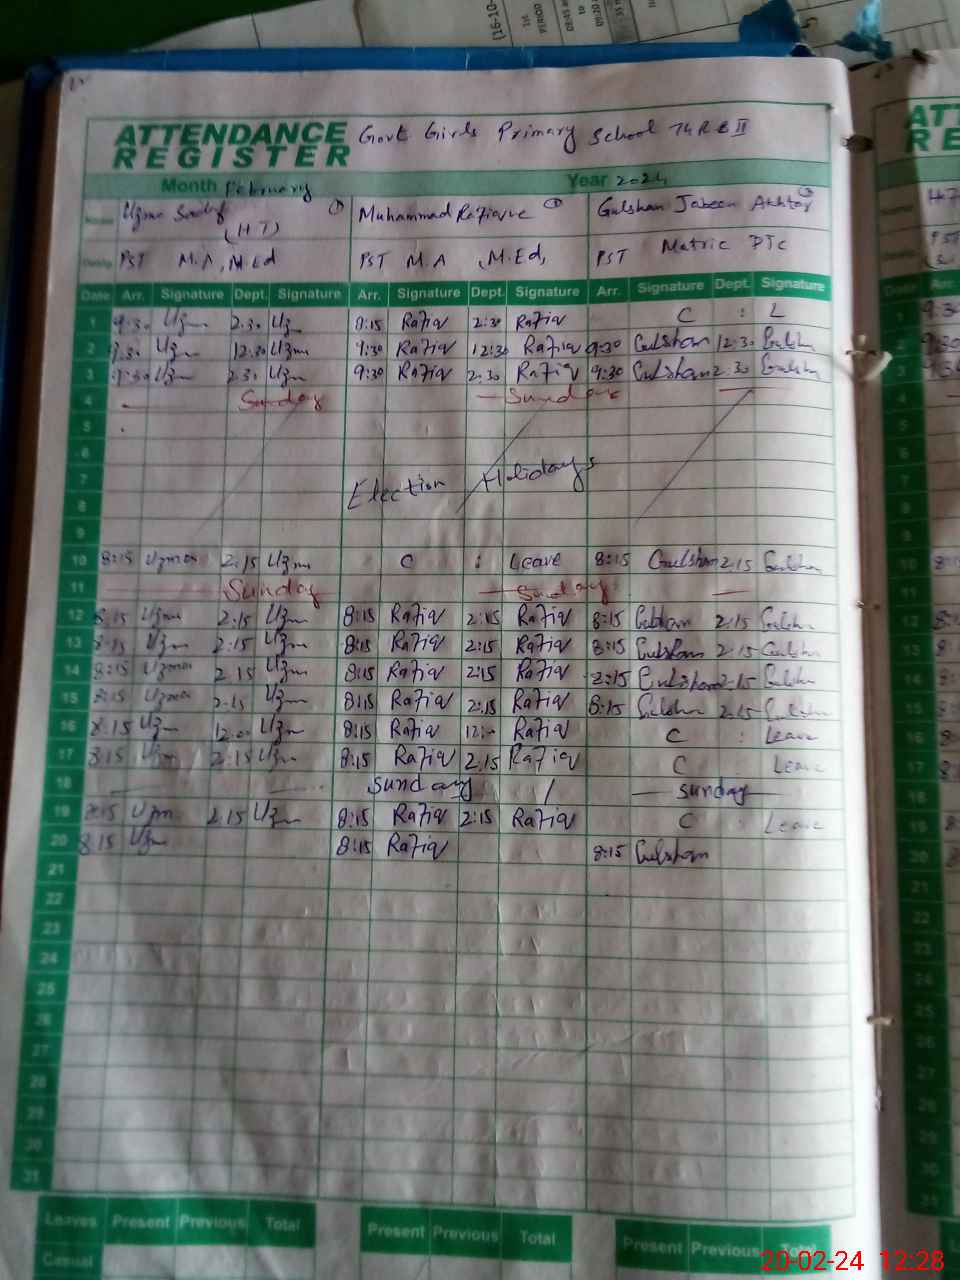 (16-10-
1st
PERIOD
to
ATTENDANCE
REGISTER
Govt Girls Primary School 74 R B II
Month February Year 2024
Name Uzma (HT) Muhammad Rafique Gulshan Jabeen Akhtar
Desig. PST M.A, M.Ed PST M.A, M.Ed, PST Metric PTC
Date Arr. Signature Dept. Signature Arr. Signature Dept. Signature Arr. Signature Dept. Signature
1 9:30 Uzm 2.30 Uz 8:15 Rafiq 2:30 Rafiq C : L
2 9.30 Uzm 12.30 Uzm 9:30 Rafiq 12:30 Rafiq 9:30 Gulshan 12.30 Gulshn
3 9.30 Uzm 2.30 Uzm 9:30 Rafiq 2.30 Rafiq 9:30 Gulshan 2.30 Gulshn
4 Sunday Sunday
5
6
7 Election Holidays
8
9
10 8:15 Uzma 2.15 Uzm C : Leave 8:15 Gulshan 2.15 Gulshn
11 Sunday Sunday
12 8.15 Uzm 2.15 Uzm 8:15 Rafiq 2:15 Rafiq 8:15 Gulshan 2.15 Gulshn
13 8.15 Uzm 2.15 Uzm 8:15 Rafiq 2:15 Rafiq 8:15 Gulshan 2.15 Gulshn
14 8:15 Uzma 2.15 Uzm 8:15 Rafiq 2:15 Rafiq 8:15 Gulshan 2.15 Gulshn
15 8:15 Uzma 2.15 Uzm 8:15 Rafiq 2:15 Rafiq 8:15 Gulshn 2.15 Gulshn
16 8.15 Uzm 12.00 Uzm 8:15 Rafiq 12:- Rafiq C : Leave
17 8.15 Uzm 2:15 Uzm 8:15 Rafiq 2.15 Rafiq C Leave
18 Sunday Sunday
19 8:15 Uzm 2.15 Uzm 8:15 Rafiq 2:15 Rafiq C : Leave
20 8.15 Uzm 8:15 Rafiq 8:15 Gulshan
21
22
23
24
25
26
27
28
29
30
31
Leaves Present Previous Total Present Previous Total Present Previous Total
Casual
20-02-24 12:28